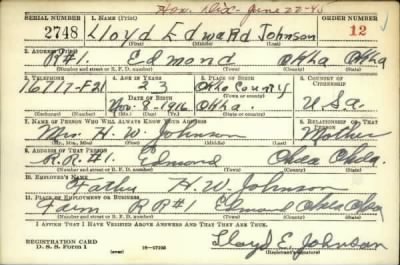 Hon. Disc. June 22-45
SERIAL NUMBER 1. NAME (Print) ORDER NUMBER
2748 Lloyd Edward Johnson 12
(First) (Middle) (Last)
2. ADDRESS (Print)
R#1. Edmond Okla Okla
(Number and street or R. F. D. number) (Town) (County) (State)
3. TELEPHONE 4. AGE IN YEARS 5. PLACE OF BIRTH 6. COUNTRY OF CITIZENSHIP
16717-F21 23 Okla County
DATE OF BIRTH
Nov. 8-1916 Okla U.S.a.
(Exchange) (Number) (Mo.) (Day) (Yr.) (State or country)
7. NAME OF PERSON WHO WILL ALWAYS KNOW YOUR ADDRESS 8. RELATIONSHIP OF THAT PERSON
Mrs. H. W. Johnson Mother
(Mr., Mrs., Miss) (First) (Middle) (Last)
9. ADDRESS OF THAT PERSON
R.R.#1. Edmond Okla Okla.
(Number and street or R. F. D. number) (Town) (County) (State)
10. EMPLOYER'S NAME
Father H.W. Johnson
11. PLACE OF EMPLOYMENT OR BUSINESS
Farm RR#1 Edmond Okla Okla
(Number and street or R. F. D. number) (Town) (County) (State)
I AFFIRM THAT I HAVE VERIFIED ABOVE ANSWERS AND THAT THEY ARE TRUE.
REGISTRATION CARD
D. S. S. Form 1 (over) 16-17105 Lloyd E. Johnson